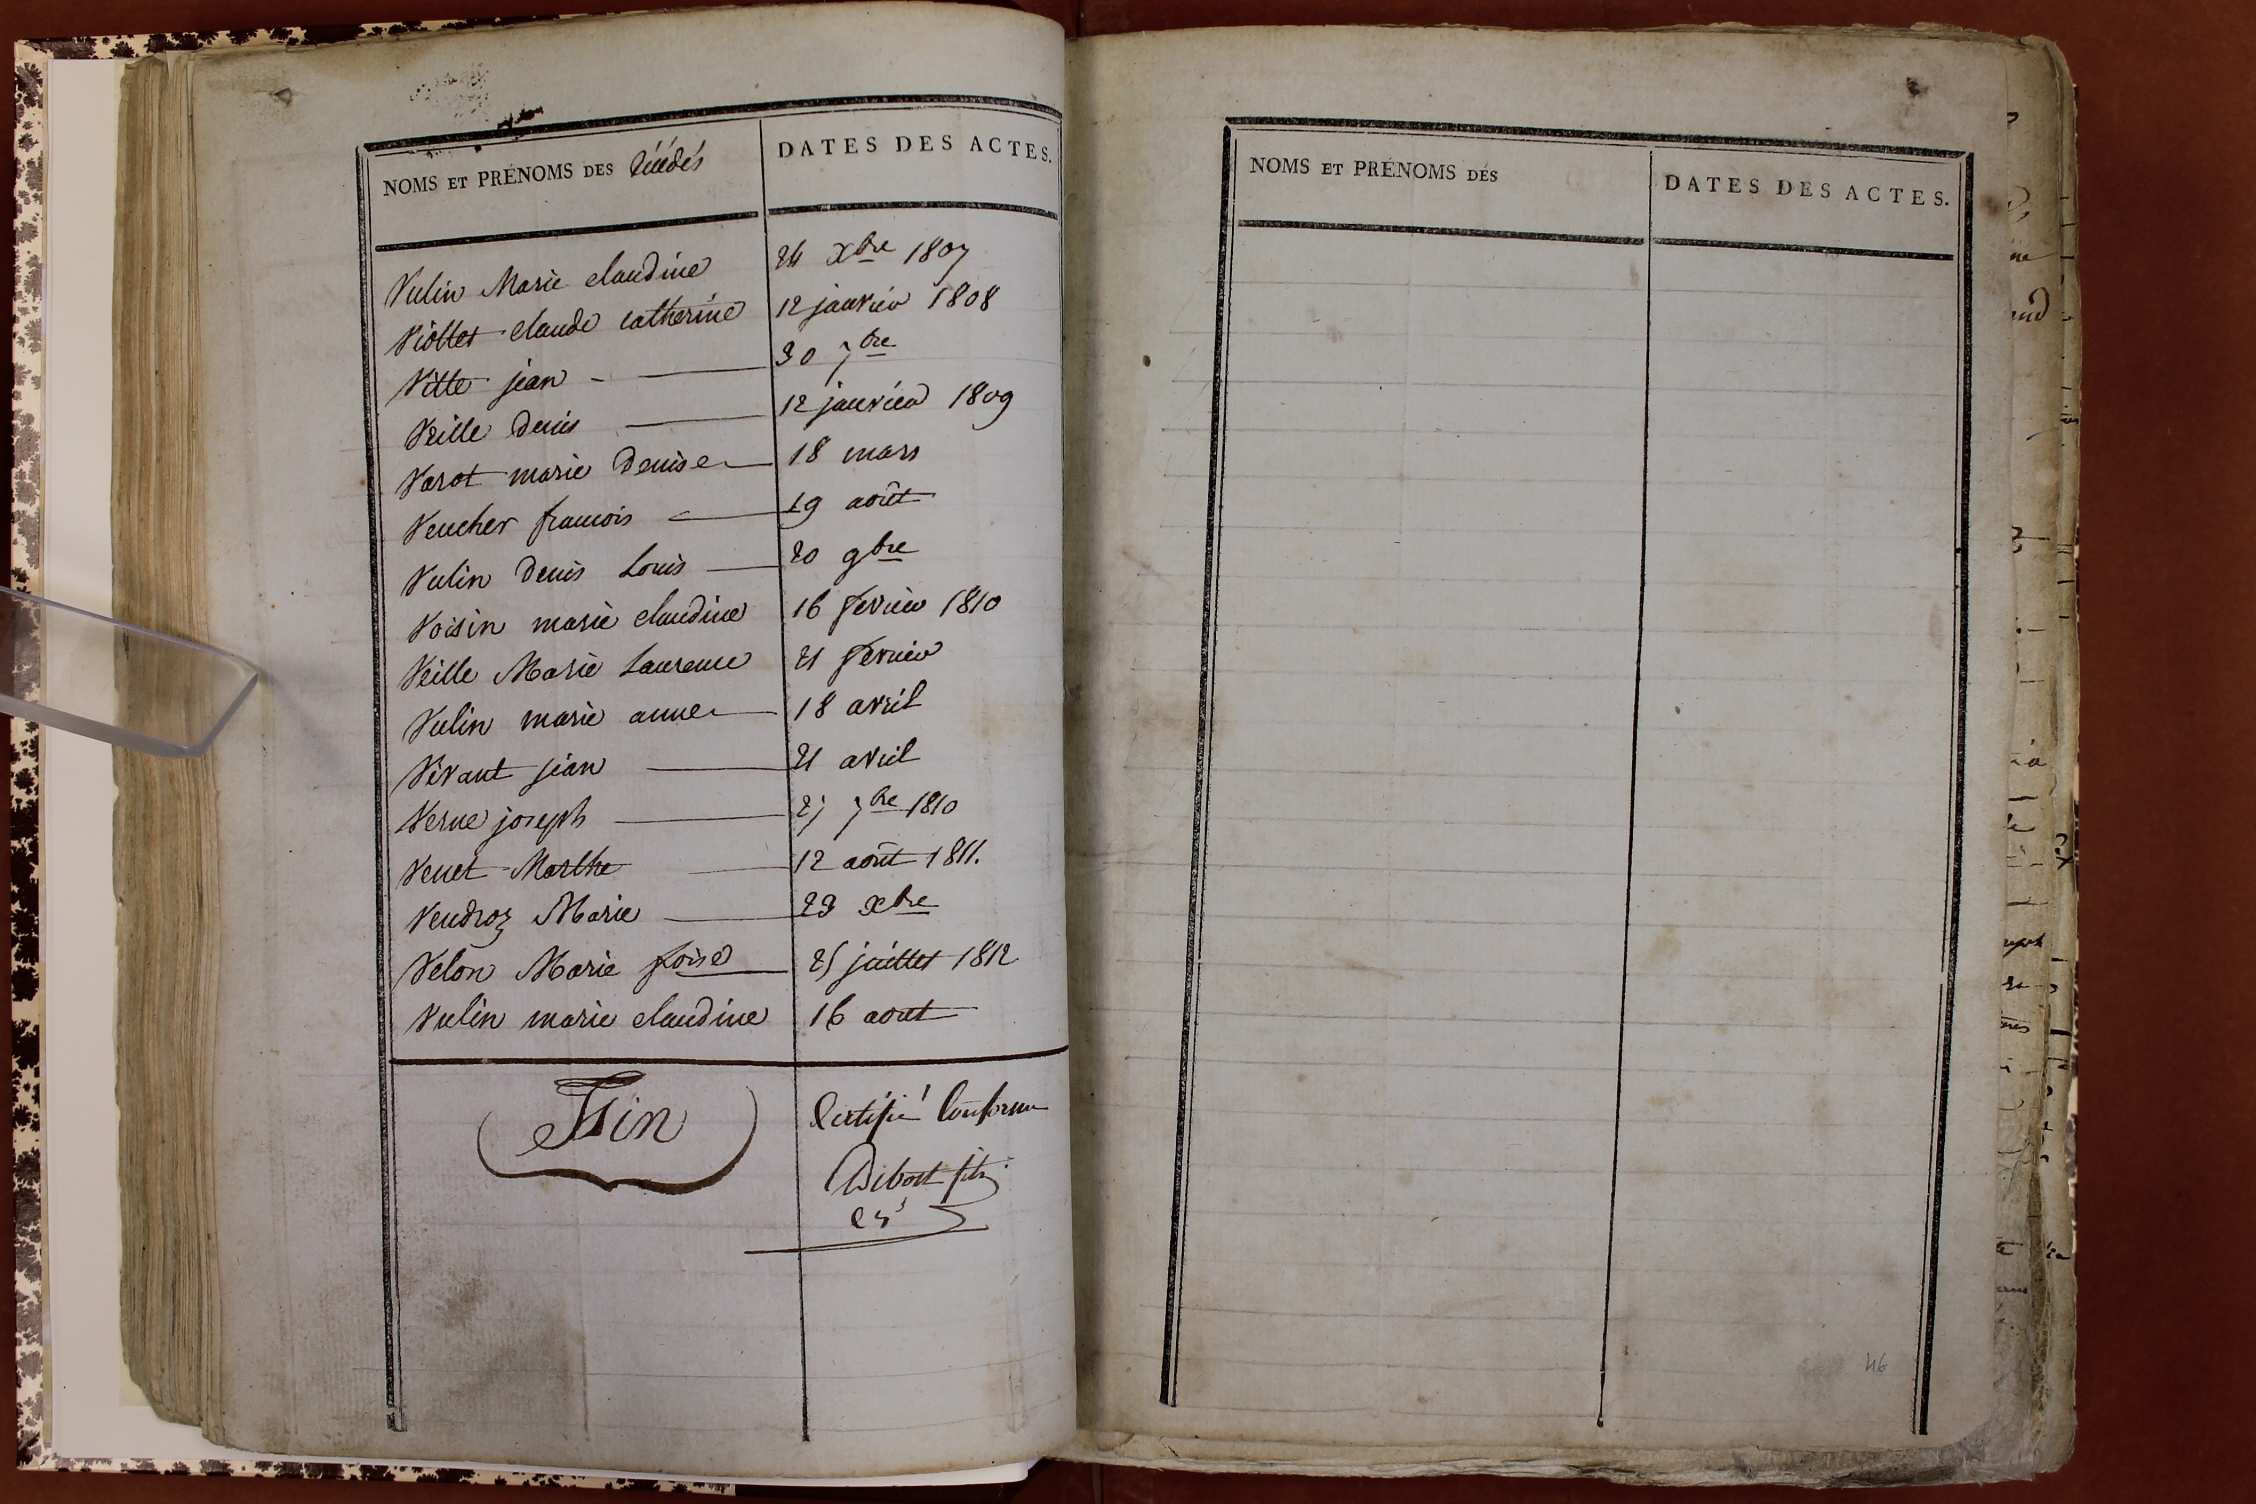 NOMS ET PRÉNOMS DES Décédés DATES DES ACTES.
Vulin Marie claudine 24 Xbre 1807
Viollet claude catherine 12 janvier 1808
Vitte jean 30 7bre
Veille Denis 12 janvier 1809
Varot marie Denise 18 mars
Veucher francois 19 août
Vulin Denis Louis 20 9bre
Voisin marie claudine 16 fevrier 1810
Veille Marie Laurence 21 fevrier
Vulin marie anne 18 avril
Vivant jean 21 avril
Verne joseph 27 7bre 1810
Venet Marthe 12 août 1811.
Vendroz Marie 23 xbre
Velon Marie foise 25 juillet 1812
Vulin marie claudine 16 aout
Fin
Certifié Conforme
fils
NOMS ET PRÉNOMS DES DATES DES ACTES.
46